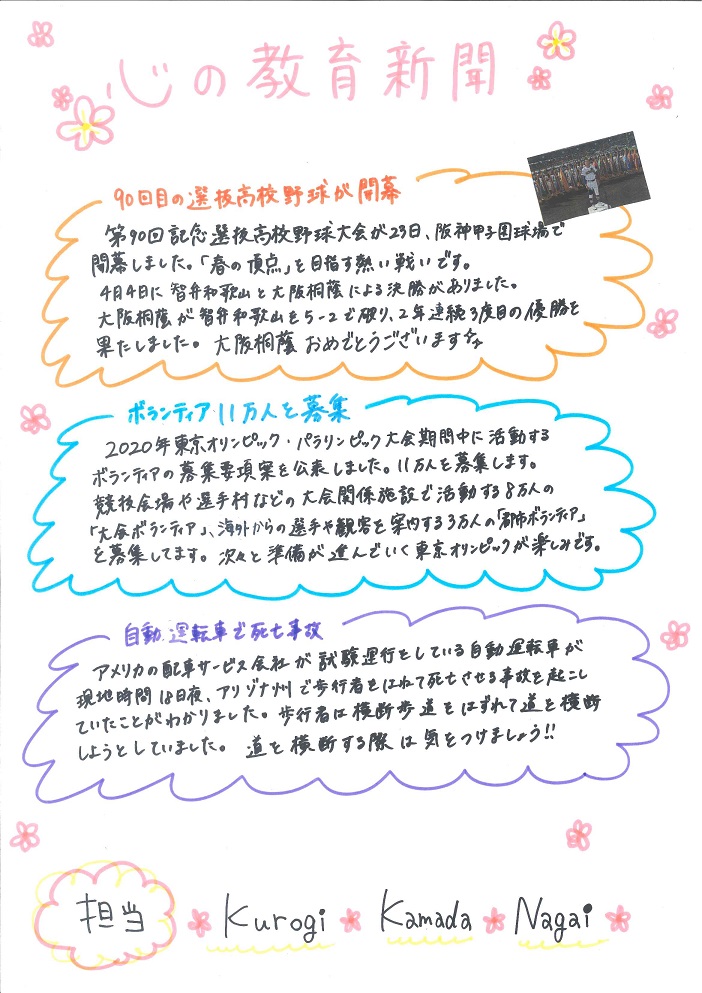 心の教育新聞
90回目の選抜高校野球が開幕
第90回記念選抜高校野球大会が23日、阪神甲子園球場で
開幕しました。「春の頂点」を目指す熱い戦いです。
4月4日に智弁和歌山と大阪桐蔭による決勝がありました。
大阪桐蔭が智弁和歌山を5-2で破り、2年連続3度目の優勝を
果たしました。大阪桐蔭おめでとうございます☆☆
ボランティア11万人を募集
2020年東京オリンピック・パラリンピック大会期間中に活動する
ボランティアの募集要項案を公表しました。11万人を募集します。
競技会場や選手村などの大会関係施設で活動する8万人の
「大会ボランティア」、海外からの選手や観客を案内する3万人の「都市ボランティア」
を募集してます。次々と準備が進んでいく東京オリンピックが楽しみです。
自動運転車で死亡事故
アメリカの配車サービス会社が試験運行をしている自動運転車が
現地時間18日夜、アリゾナ州で歩行者をはねて死亡させる事故を起こし
ていたことがわかりました。歩行者は横断歩道をはずれて道を横断
しようとしていました。道を横断する際は気をつけましょう!!
担当 Kurogi Kamada Nagai